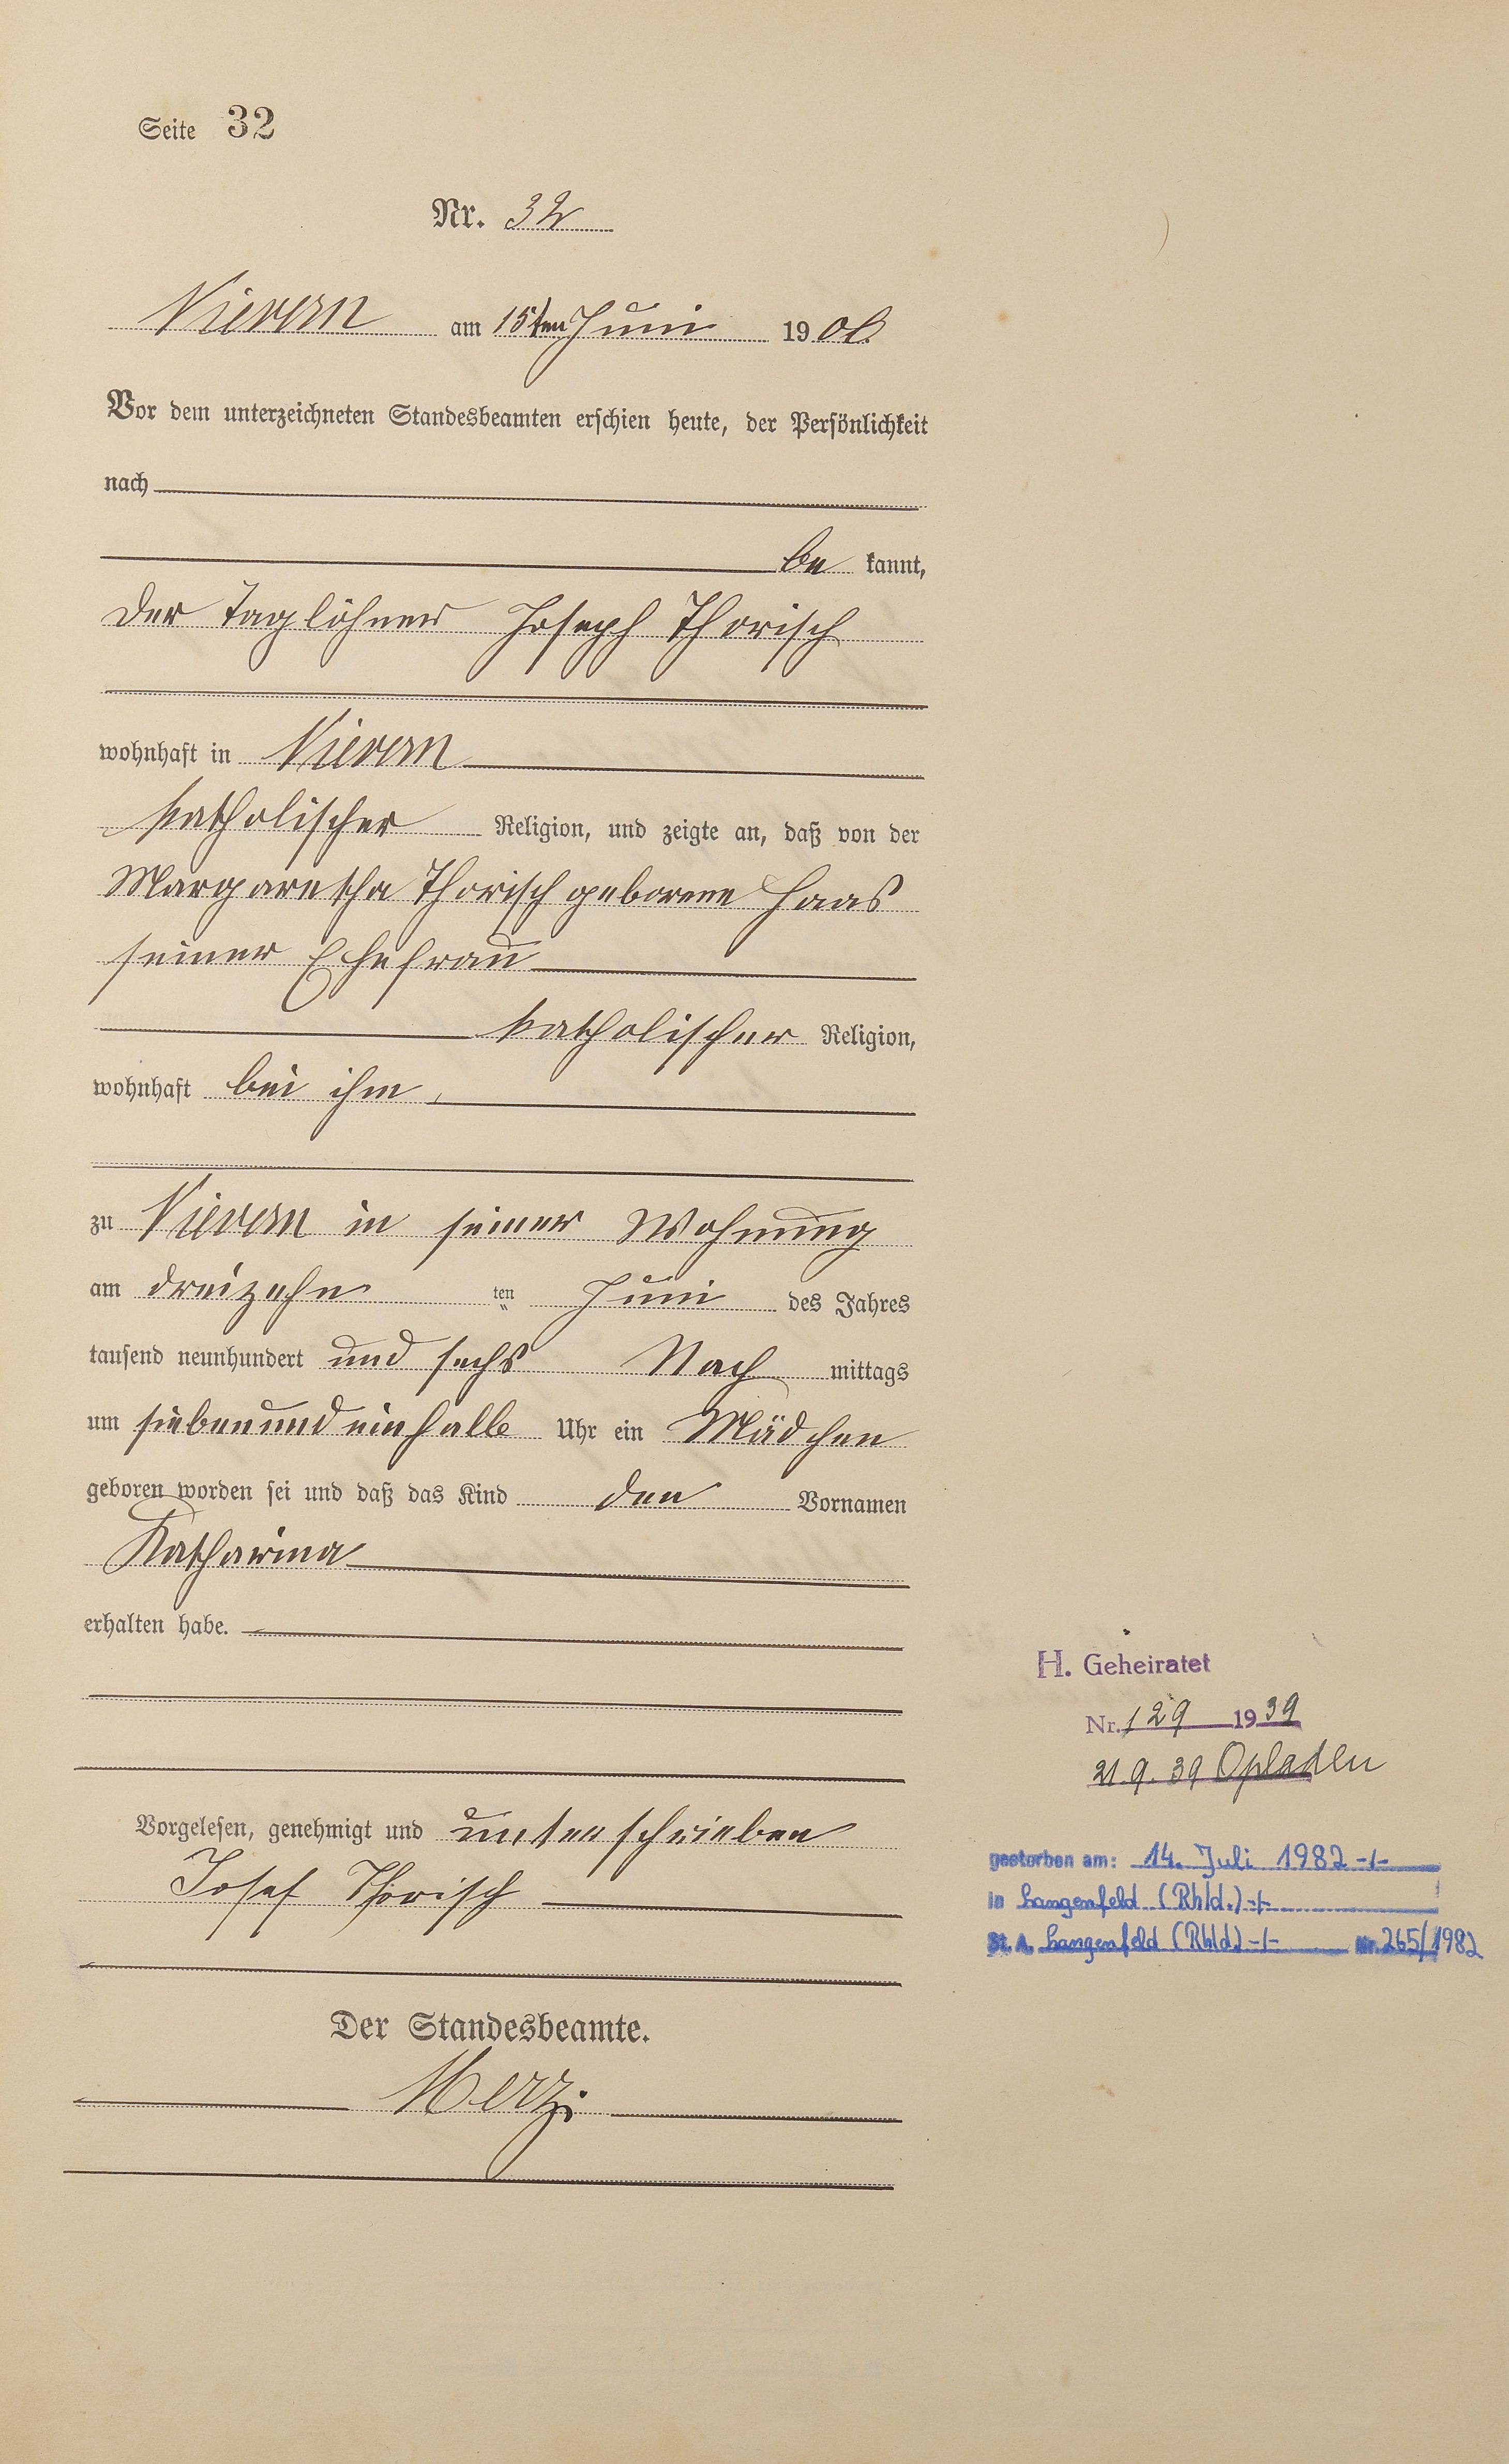 Seite 32
Nr. 32
Nievern am 15ten Juni 1906.
Vor dem unterzeichneten Standesbeamten erschien heute, der Persönlichkeit
nach
be kannt,
der Taglöhner Joseph Thorisch
wohnhaft in Nievern
katholischer Religion, und zeigte an, daß von der
Margaretha Thorisch geborene Haas
seiner Ehefrau
katholischer Religion,
wohnhaft bei ihm,
zu Nievern in seiner Wohnung
am dreizehn ten Juni des Jahres
tausend neunhundert und sechs Nach mittags
um siebenundeinhalb Uhr ein Mädchen
geboren worden sei und daß das Kind den Vornamen
Katharina
erhalten habe.
Vorgelesen, genehmigt und unterschrieben
Josef Thorisch
Der Standesbeamte.
Merz.
H. Geheiratet
Nr. 129 1939
21.9.39 Opladen
gestorben am: 14. Juli 1982 -/-
in Langenfeld (Rhld.) -/-
St. A. Langenfeld (Rhld) -/- Nr. 265/1982